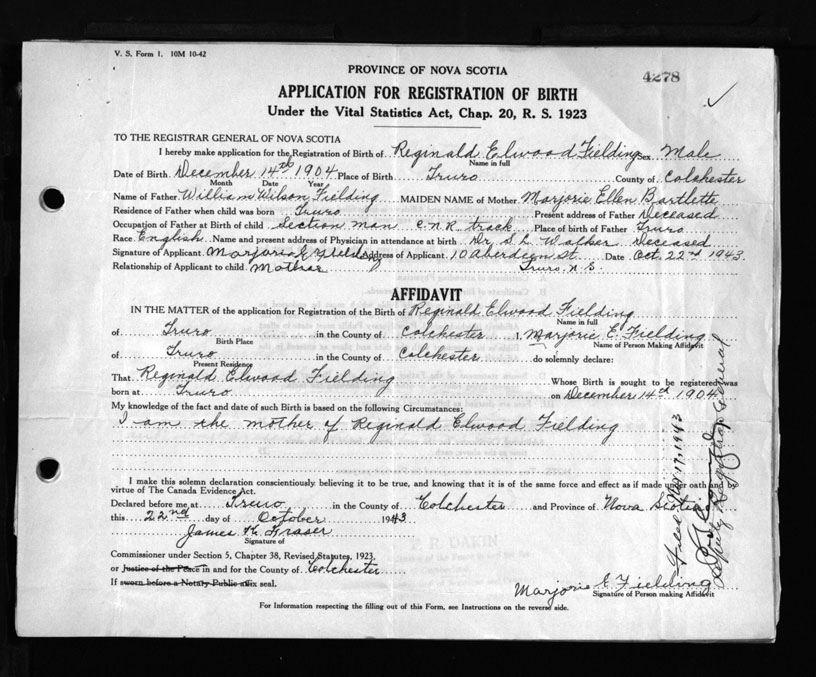 V. S. Form 1. 10M 10-42
PROVINCE OF NOVA SCOTIA
4278
APPLICATION FOR REGISTRATION OF BIRTH
Under the Vital Statistics Act, Chap. 20, R. S. 1923
TO THE REGISTRAR GENERAL OF NOVA SCOTIA
I hereby make application for the Registration of Birth of Reginald Elwood Fielding Sex Male
Name in full
Date of Birth December 14th 1904 Place of Birth Truro County of Colchester
Month Date Year
Name of Father William Wilson Fielding MAIDEN NAME of Mother Marjorie Ellen Bartlette
Residence of Father when child was born Truro Present address of Father Deceased
Occupation of Father at Birth of child Section man C.N.R track Place of birth of Father Truro
Race English Name and present address of Physician in attendance at birth Dr. S. L. Walker Deceased
Signature of Applicant Marjorie E Fielding Address of Applicant 10 Aberdeen St. Date Oct. 22nd 1943.
Relationship of Applicant to child Mother Truro N.S
AFFIDAVIT
IN THE MATTER of the application for Registration of the Birth of Reginald Elwood Fielding
Name in full
of Truro in the County of Colchester I, Marjorie E. Fielding
Birth Place Name of Person Making Affidavit
of Truro in the County of Colchester do solemnly declare:
Present Residence
That Reginald Elwood Fielding Whose Birth is sought to be registered was
born at Truro on December 14th 1904
My knowledge of the fact and date of such Birth is based on the following Circumstances:
I am the mother of Reginald Elwood Fielding
I make this solemn declaration conscientiously believing it to be true, and knowing that it is of the same force and effect as if made under oath and by
virtue of The Canada Evidence Act.
Declared before me at Truro in the County of Colchester and Province of Nova Scotia
this 22nd day of October 1943
James K. Fraser
Signature of
Commissioner under Section 5, Chapter 38, Revised Statutes, 1923,
or Justice of the Peace in and for the County of Colchester
If sworn before a Notary Public affix seal.
Marjorie E. Fielding
Signature of Person making Affidavit
For Information respecting the filling out of this Form, see Instructions on the reverse side.
Nov. 17, 1943
Deputy Registrar General